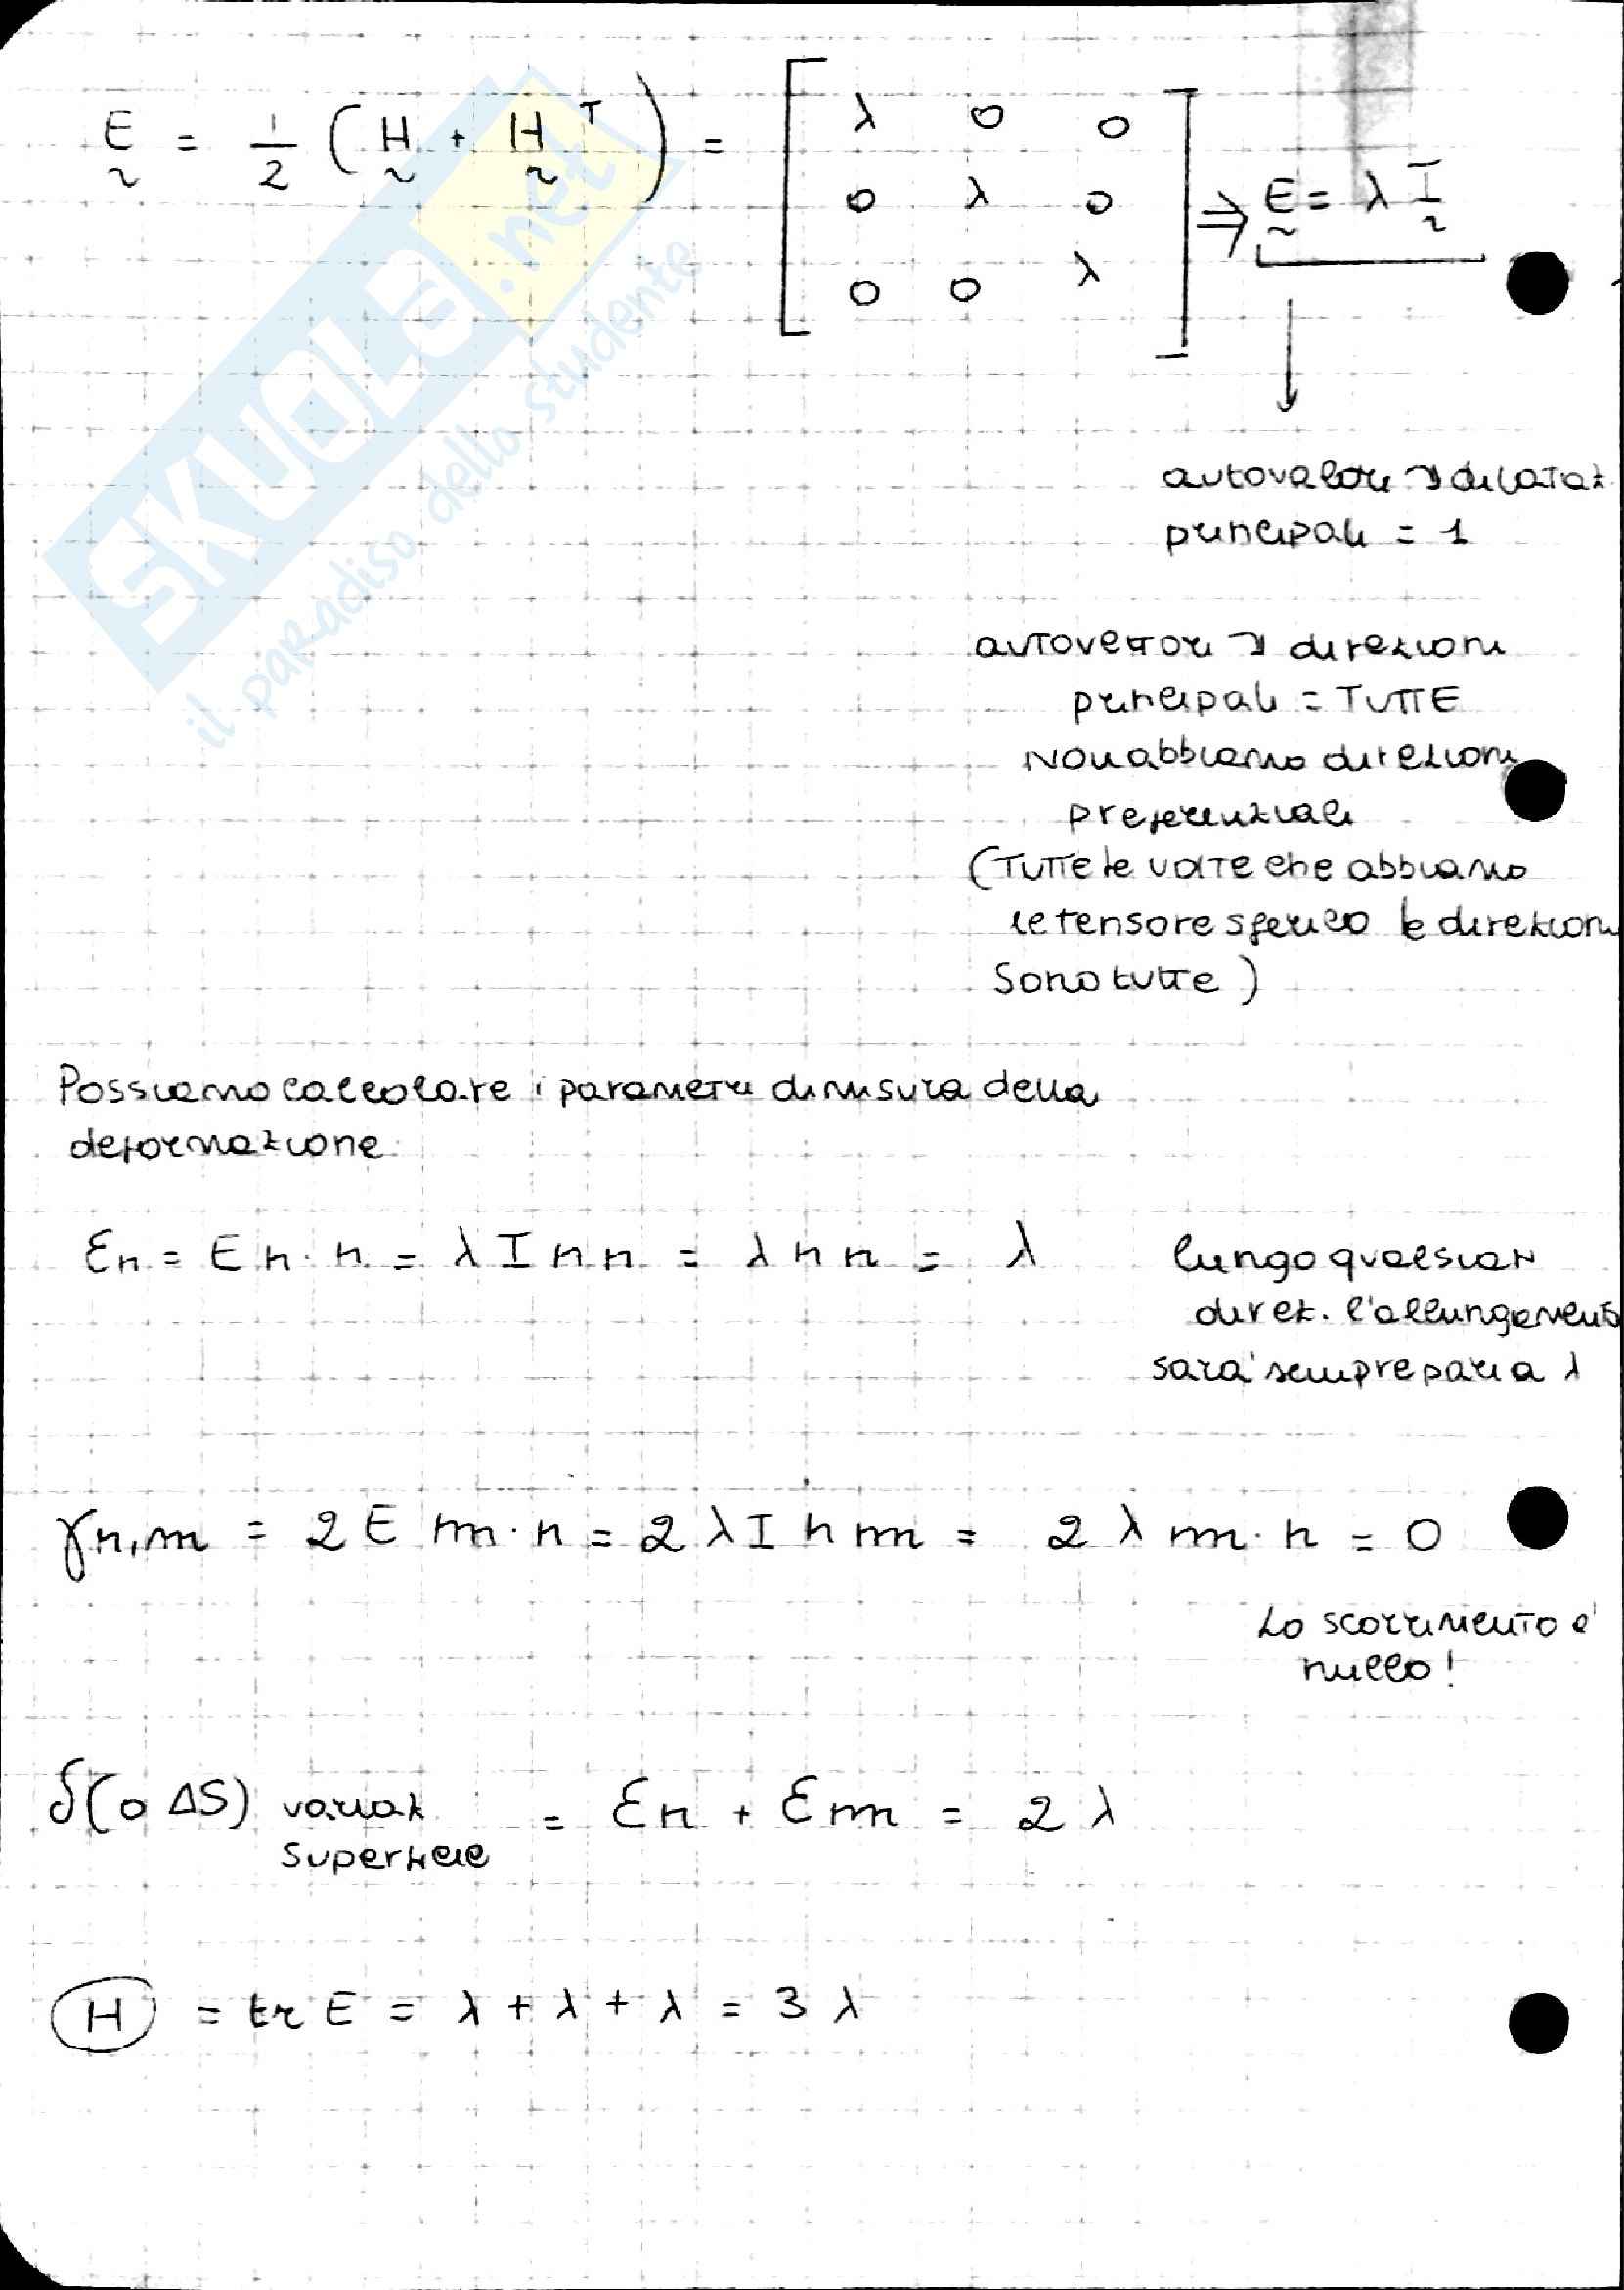 E = 1/2 (H + H^T) = [λ 0 0
0 λ 0
0 0 λ] ⇒ E = λ I
autovalori → dilataz
principali = 1
autovettori → direzioni
principali = TUTTE
Non abbiamo direzioni
preferenziali
(TUTTE le volte che abbiamo
il tensore sferico le direzioni
sono tutte)
Possiamo calcolare i parametri di misura della
deformazione
εn = E n · n = λ I n n = λ n n = λ
lungo qualsiasi
direz. l'allungamento
sarà sempre pari a λ
γn,m = 2 E m · n = 2 λ I n m = 2 λ m · n = 0
Lo scorrimento è
nullo!
δ(o ΔS) variaz superficie = εn + εm = 2 λ
H = tr E = λ + λ + λ = 3 λ
SKUOLA.net
il paradiso dello studente